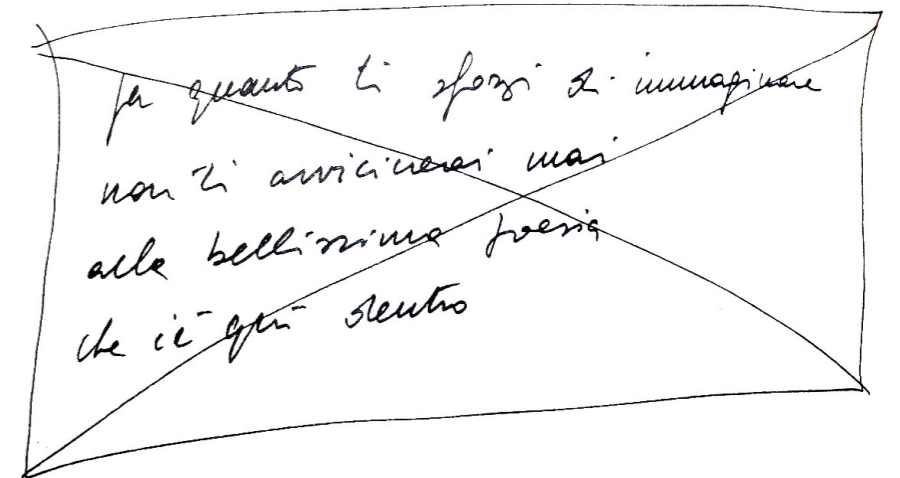 per quanto ti sforzi di immaginare
non ti avvicinerai mai
alla bellissima poesia
che c'è qui dentro